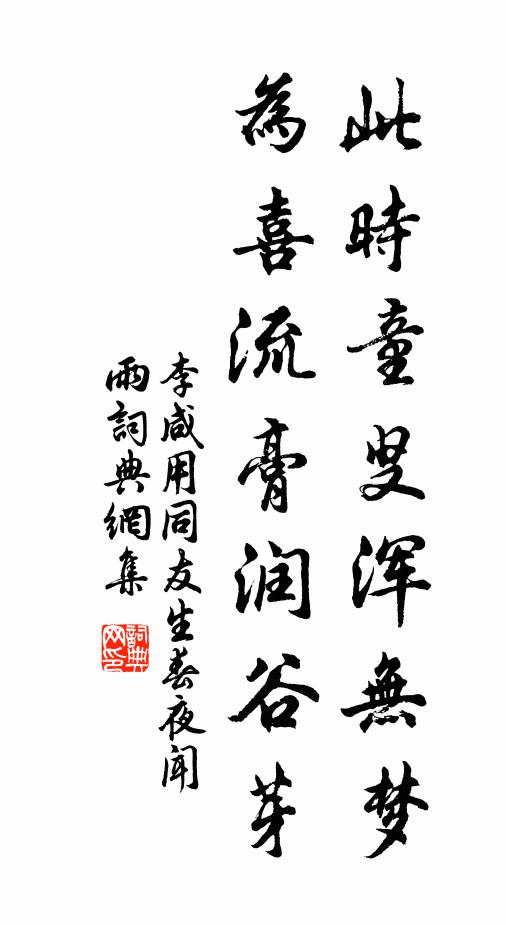 此時童叟浑無梦
為喜流膏润谷芽
李咸用同友生春夜闻
雨詞典網集
詞典网印